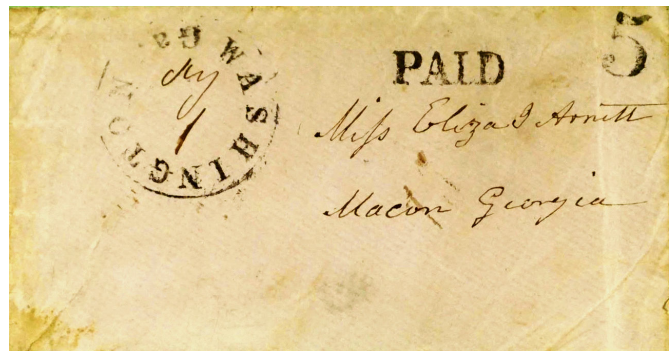 WASHINGTON Ga.
1
PAID
5
Miſs Eliza J Arnett
Macon Georgia